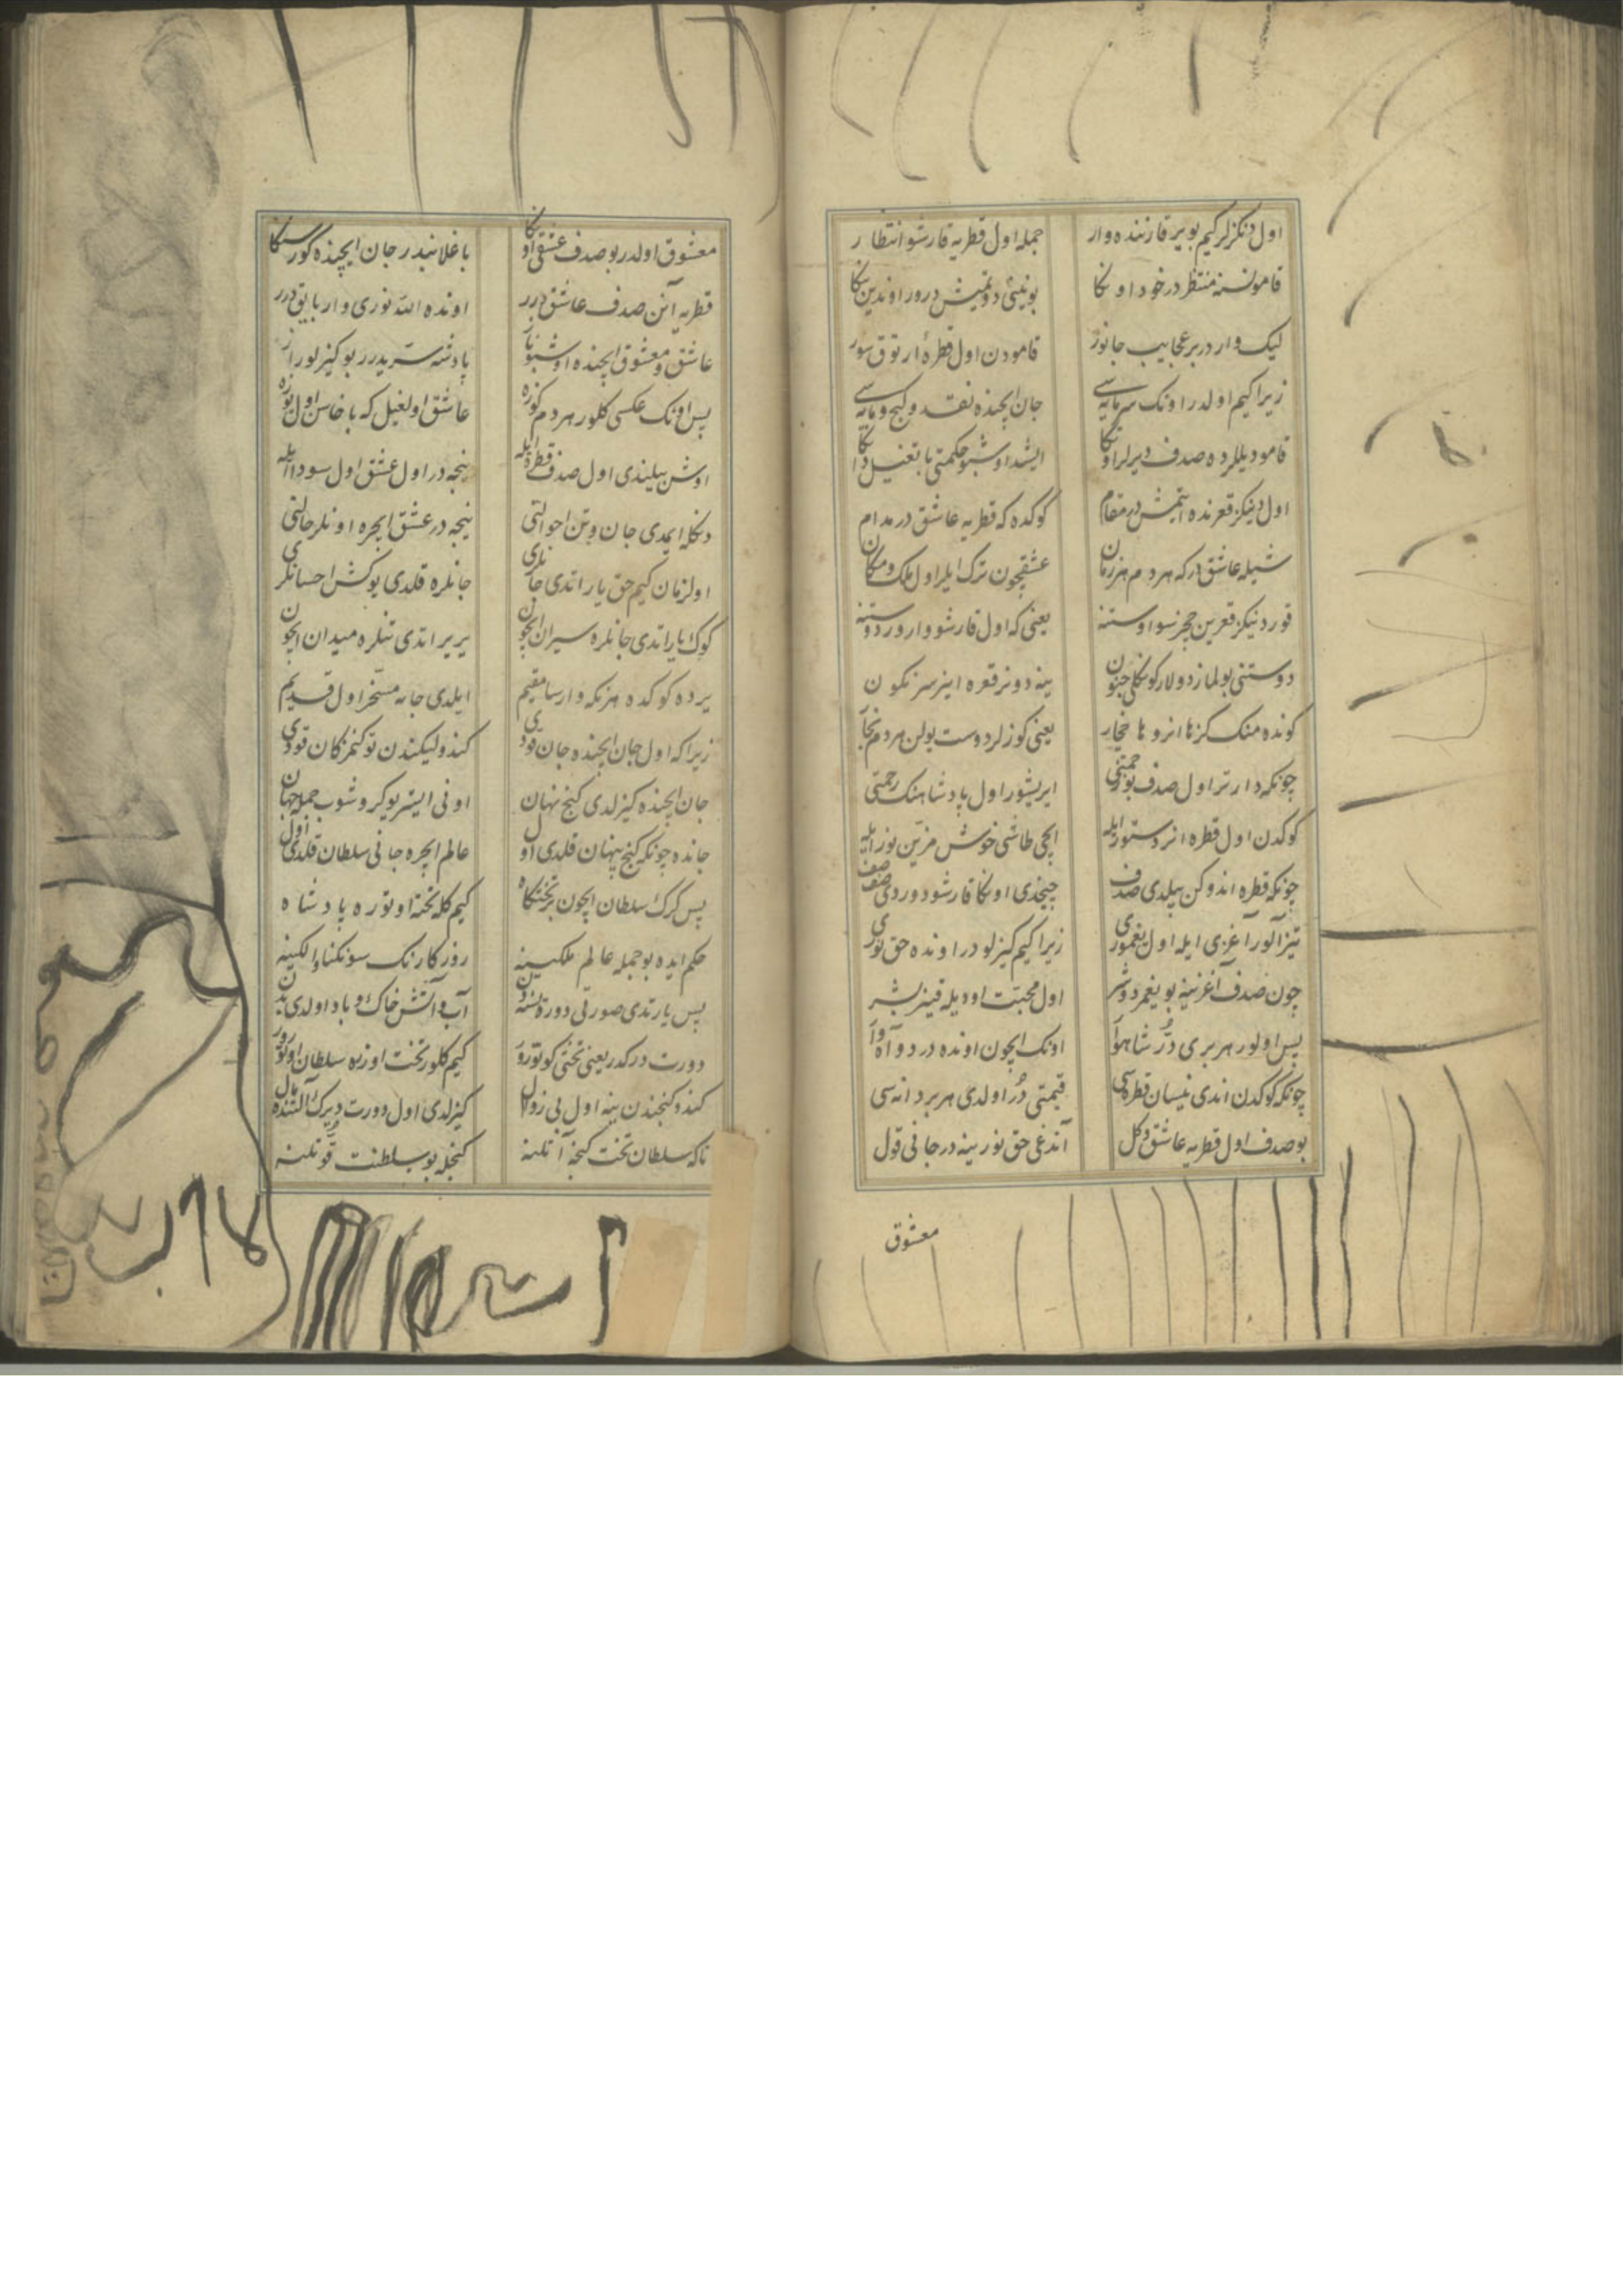 اول دنكزلر كيم بو ير قارننده وار جمله اول قطريه قارشو انتظار
قامو نسنه منتظر در خود اوكا بوينى دوتميش درور اوندين يكا
ليك وار در بر عجايب جانور قامودن اول قطرۀ ارتوق سور
زيرا كيم اولدر اونك سرمايه سى جان ايچنده نقد و كنج و مايه سى
قامو ديللرده صدف ديرلر اوكا ايشد اوشبو حكمتى
اول دنيكز قعرنده ايتميش در مقام كوكده كه قطريه عاشق در مدام
شيله عاشق در كه هر دم هر زمان عشقچون ترك ايلر اول ملك و مكان
قور دنيكز قعرين چيخر سو اوستنه يعنى كه اول قارشو وارور دوستنه
دوستنى بولماز دولار كوكلى چو خون ينه دونر قعره اينر سر نكون
كونده منك كز ها انر و ها چيخار يعنى كوزلر دوست يولن هر دم
چونكه دارتر اول صدف بو زحمتى ايريشور اول پادشاهنك رحمتى
كوكدن اول قطره انر دستور ايله ايچى طاشى خوش مزين نور ايله
چونكه قطره اندوكن بيلدى صدف چيخدى اوكا قارشو دوردى صف صف
تيز آلور آغزى ايله اول يغمورى زيرا كيم كيزلو در اونده حق نورى
چون صدف آغزينه بو يغمر دوشر اول محبت اوديله قينر بشر
پس اولور هر برى در شاهوار اونك ايچون اونده در دو آه و
چونكه كوكدن اندى نيسان قطره سى قيمتى در اولدى هر بر دانه سى
بو صدف اول قطريه عاشق دكل آندغى حق نورينه در جانى قول
معشوق
معشوق اولدر بو صدف عشقى اوكا باغلانبدر جان ايچنده كور سكا
قطريه آنن صدف عاشق درر اونده الله نورى وار بايق درر
عاشق و معشوق ايچنده اوشبو ناز پادشه سريدرر بو كيزلو راز
پس اونك عكسى كلور هر دم كوزه عاشق اولغيل كه باخاسن اول يوزه
اوشن بيليندى اول صدف قطره ايله نيجه در اول عشق اول سودا ايله
دكله ايمدى جان و تن احوالنى نيجه در عشق ايچره اونلر حالنى
اول زمان كيم حق ياراتدى جانلرى جانلره قلدى يوكش احسانلرى
كوك ياراتدى جانلره سيران ايچون ير ير اتدى تنلره ميدان ايچون
يرده كوكده هر نكه وارسا مقيم ايلدى جانه مسخر اول قديم
زيرا كه اول جان ايچنده جان قودى كندوليكندن توكنمز كان قودى
جان ايچنده كيزلدى كنج نهان اونى ايستر يوكروشوب جمله جهان
جانده چونكه كنج پنهان قلدى اول عالم ايچره جانى سلطان قلدى اول
پس كرك سلطان ايچون بر تختكاه كيم كله تخته اوتوره پادشاه
حكم ايده بو جمله عالم ملكينه روزكارنك سونكنا و الكينه
پس يارتدى صورتى دورت نسنه دن آب و آتش خاك و باد اولدى بدن
دورت درك در يعنى تختى كوتورور كيم كلور تخت اوزره سلطان اوتورور
كندو كنجندن ينه اول بى زوال كيزلدى اول دورت ديرك آلتنده مال
تا كه سلطان تخت كنجه آتلنه كنجله بو سلطنت قوتلنه